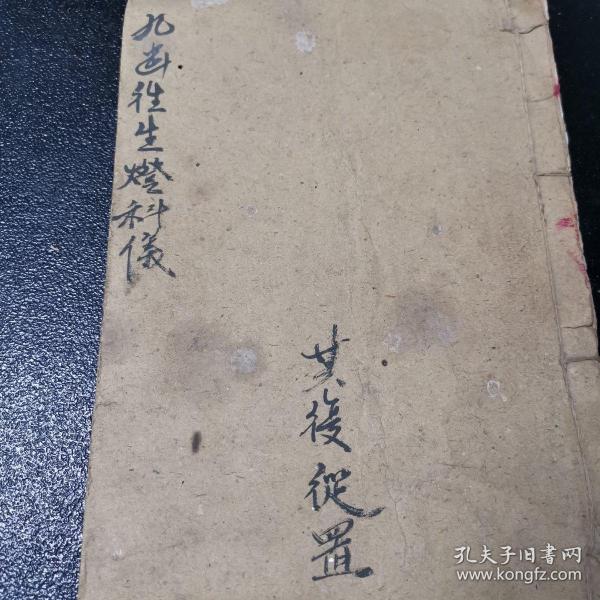 九幽往生燈科儀
黄復從置
孔夫子旧書网
www.kongfz.com